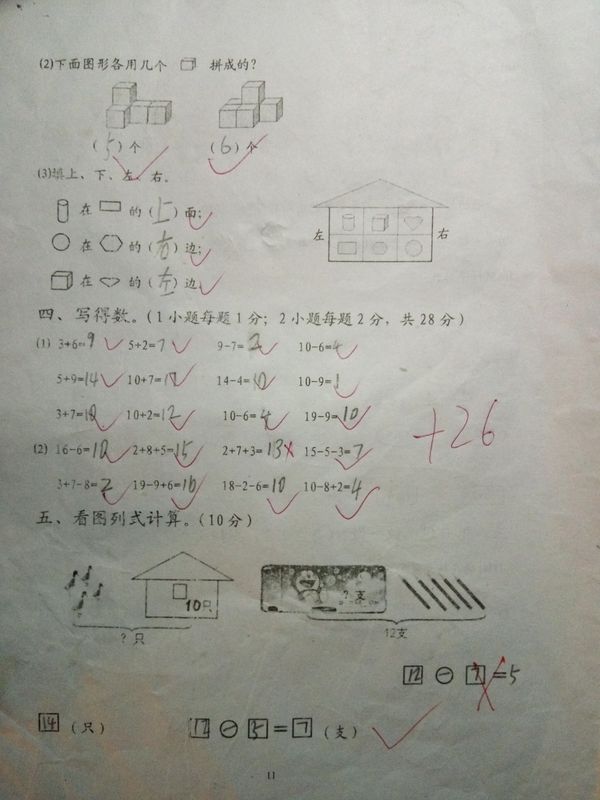 (2)下面图形各用几个 拼成的?
(5)个 (6)个
(3)填上、下、左、右。
在 的(上)面;
在 的(右)边;
在 的(左)边。
左 右
四、写得数。(1小题每题1分;2小题每题2分,共28分)
(1) 3+6=9 5+2=7 9-7=2 10-6=4
5+9=14 10+7=17 14-4=10 10-9=1
3+7=10 10+2=12 10-6=4 19-9=10
+26
(2) 16-6=10 2+8+5=15 2+7+3=13 15-5-3=7
3+7-8=2 19-9+6=16 18-2-6=10 10-8+2=4
五、看图列式计算。(10分)
10只 ?支
?只 12支
12-7=5
14(只) 12-5=7(支)
11